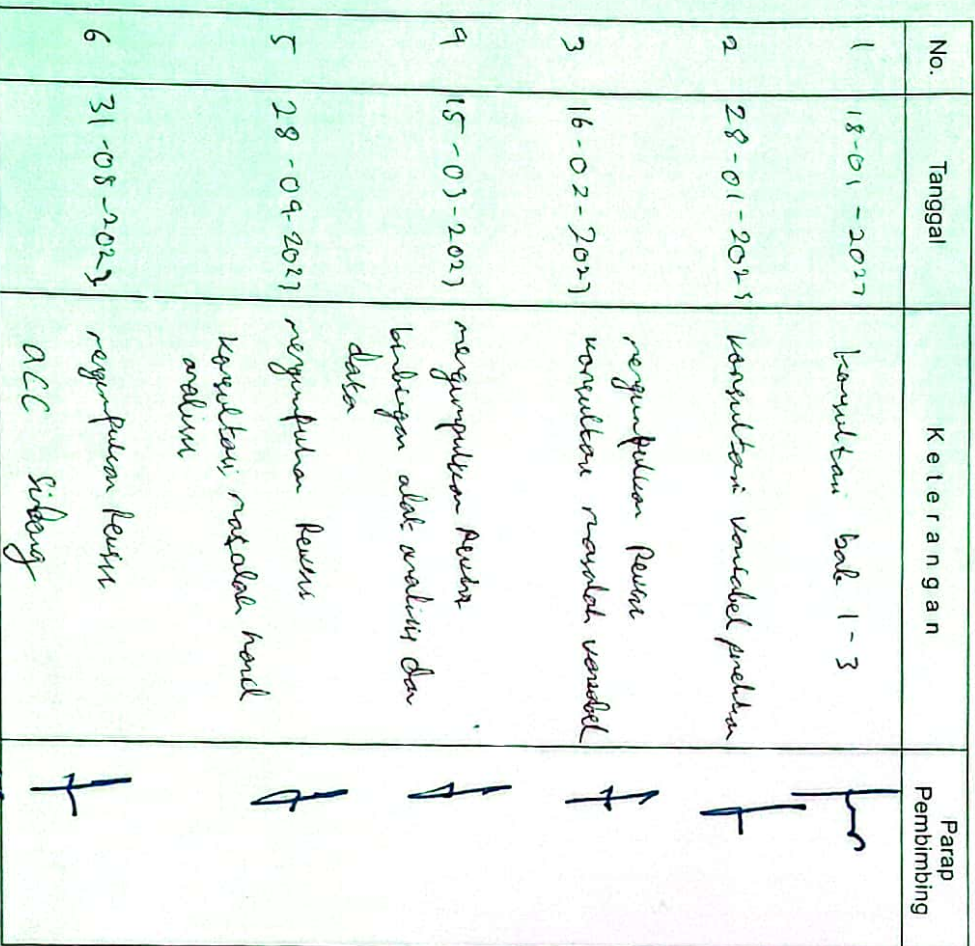 No. Tanggal Keterangan Parap Pembimbing
1 18-01-2023 konsultasi bab 1-3
2 28-01-2023 konsultasi variabel penelitian
mengumpulkan Revisi
3 16-02-2023 konsultasi masalah variabel
4 15-03-2023 mengumpulkan Revisi
bimbingan olah analisis dan
data
5 28-04-2023 mengumpulkan Revisi
konsultasi masalah hasil
analisis
6 31-05-2023 mengumpulkan Revisi
ACC Sidang